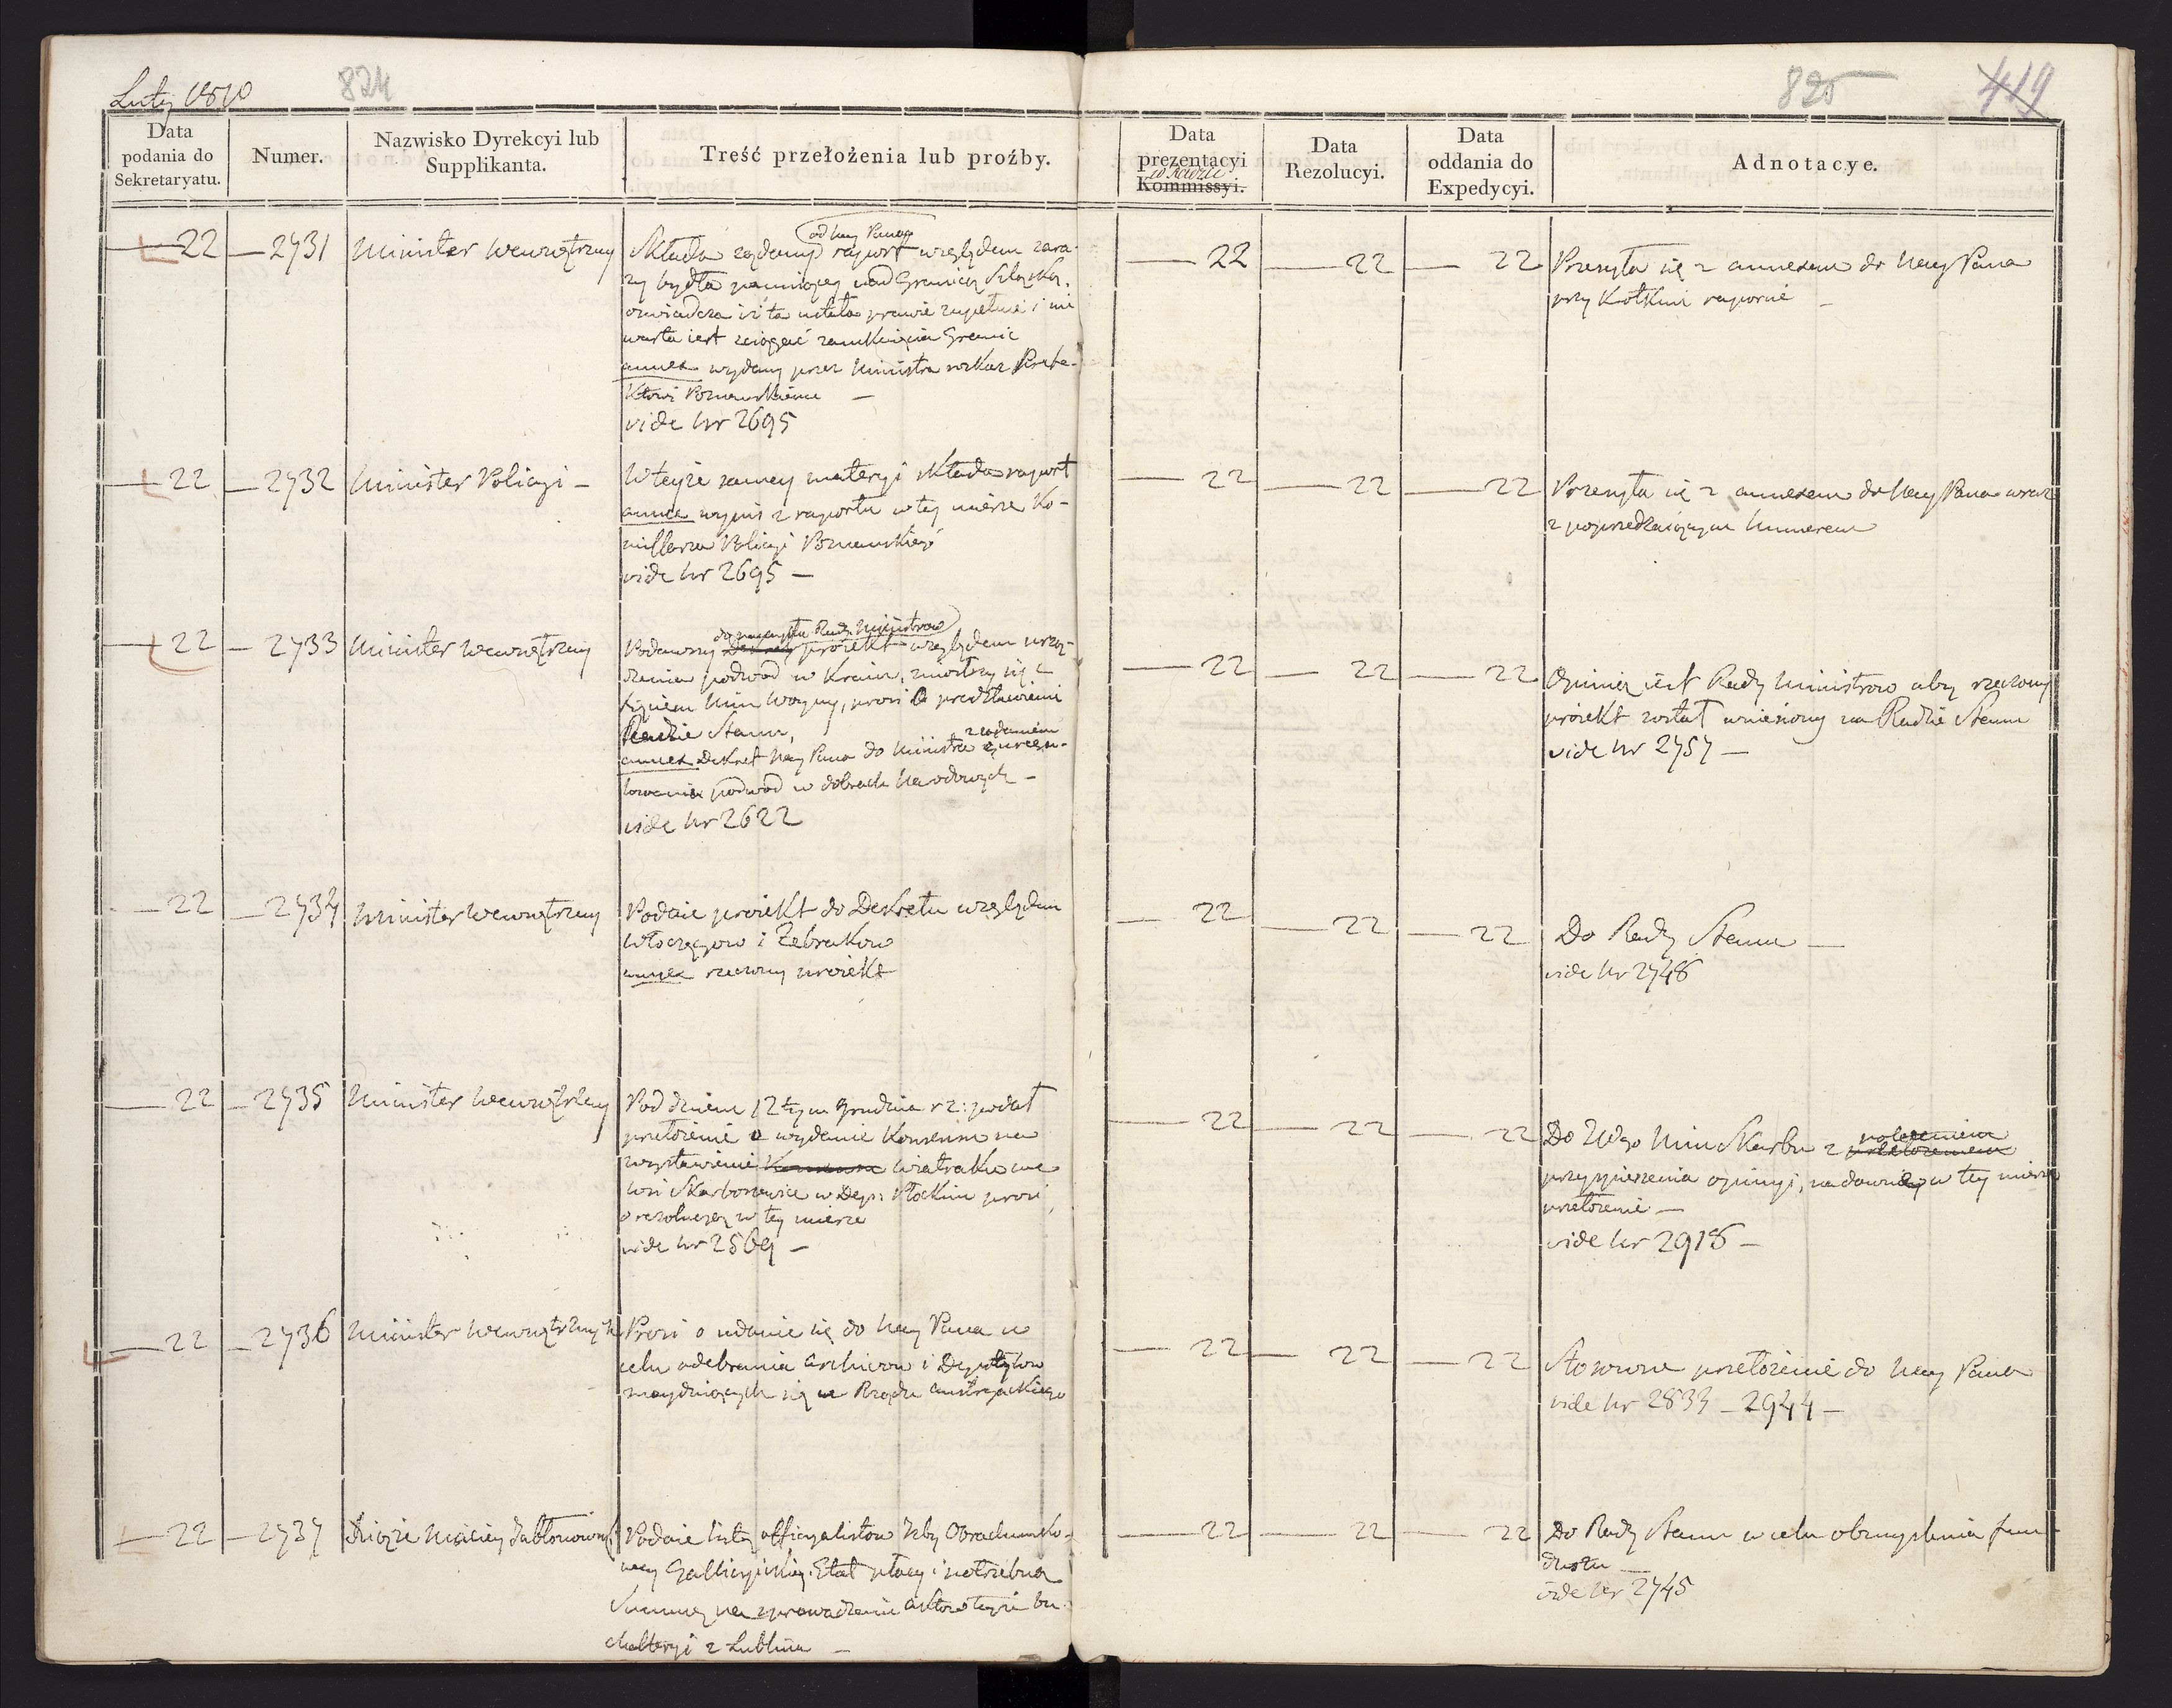 Luty 1810
824
825
419
Data podania do Sekretaryatu.
Numer.
Nazwisko Dyrekcyi lub Supplikanta.
Treść przełożenia lub proźby.
Data prezentacyi w Radzie Kommissyi.
Data Rezolucyi.
Data oddania do Expedycyi.
Adnotacye.
22 — 2731 Minister Wewnętrzny
Składa żądany od Nay Pana raport względem zara-
zy bydła panuiącey nad Granicą Szląską,
oświadcza iż ta ustała prawie zupełnie i nie
warta iest ściągać zamknięcia Granic
annex wydany przez Ministra rozkaz Prefe-
ktowi Poznańskiemu —
vide Nr 2695
— 22 — 22 — 22
Przesyła się z annexem do Nay Pana
przy krótkim raporcie —
22 — 2732 Minister Policyi —
W teyże samey materyi składa raport
annex wypis z raportu w tey mierze Ko-
missarza Policyi Poznańskiego
vide Nr 2695 —
— 22 — 22 — 22
Przesyła się z annexem do Nay Pana wraz
z poprzedzaiącym Numerem
22 — 2733 Minister Wewnętrzny
Podawszy do Rady Ministrow proiekt względem urzą-
dzenia podwod w Kraiu, zniosłszy się z
Xięciem Min Woyny, prosi o przedstawienie
Radzie Stanu,
annex Dekret Nay Pana do Ministra z żądaniem uregu-
lowania podwod w dobrach Narodowych —
vide Nr 2622
— 22 — 22 — 22
Opinią iest Rady Ministrow aby rzeczony
proiekt został wniesiony na Radzie Stanu
vide Nr 2757 —
— 22 — 2734 Minister Wewnętrzny
Podaie proiekt do Dekretu względem
Włoczęgow i Żebrakow
annex rzeczony proiekt
— 22 — 22 — 22
Do Rady Stanu —
vide Nr 2748
— 22 — 2735 Minister Wewnętrzny
Pod dniem 12tym Grudnia r z: podał
przełożenie o wydanie Konsensu na
wystawienie Wiatraku we
wsi Skarboszewice w Dep: Płockim prosi
o rezolucyą w tey mierze
vide Nr 2569 —
— 22 — 22 — 22
Do JWgo Min Skarbu z zaleceniem
przyspieszenia opinyi, na dawniey w tey mierze
przełożenie —
vide Nr 2918 —
— 22 — 2736 Minister Wewnętrzny
Prosi o udanie się do Nay Pana w
celu odebrania archiwow i Depozytow
znayduiących się w Rządu austryackiego
— 22 — 22 — 22
Stosowne przełożenie do Nay Pana
vide Nr 2834 — 2944 —
— 22 — 2737 Xiąże Maciey Jabłonowski
Podaie listę officyalistow Izby Obrachunko-
wey Gallicyiskiey, Etat płacy i potrzebną
Summę na sprowadzenie aktow teyże bu-
chalteryi z Lublina —
— 22 — 22 — 22
Do Rady Stanu w celu obmyślenia fun-
duszu —
vide Nr 2745